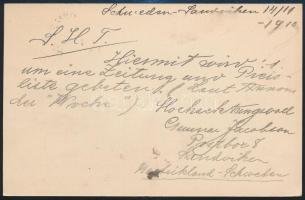 Schweden-Sandviken 14/11
-1912
S. H. T.
Hiermit wird
um eine Zeitung und Preis-
liste gebeten (laut Annons
du "Woche")
Hochachtungsvoll
Gunnar Jacobson
Postbox 8
Sandviken
Schweden